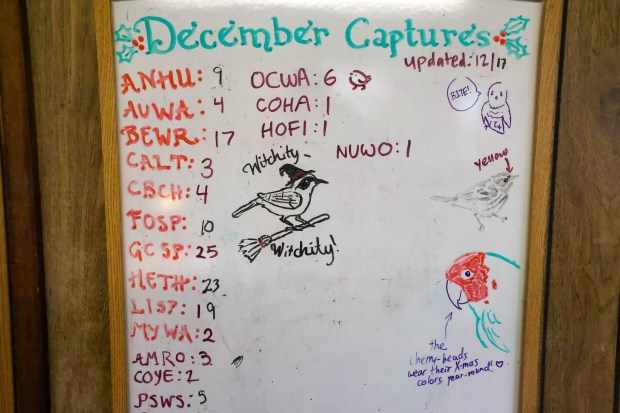 December Captures
updated: 12/17
ANHU: 9
AUWA: 4
BEWR: 17
CALT: 3
CBCH: 4
FOSP: 10
GCSP: 25
HETH: 23
LISP: 19
MYWA: 2
AMRO: 3
COYE: 2
PSWS: 5
OCWA: 6
COHA: 1
HOFI: 1
NUWO: 1
Witchity-
Witchity!
BITE!
Yellow
the
cherry-heads
wear their X-mas
colors year-round!